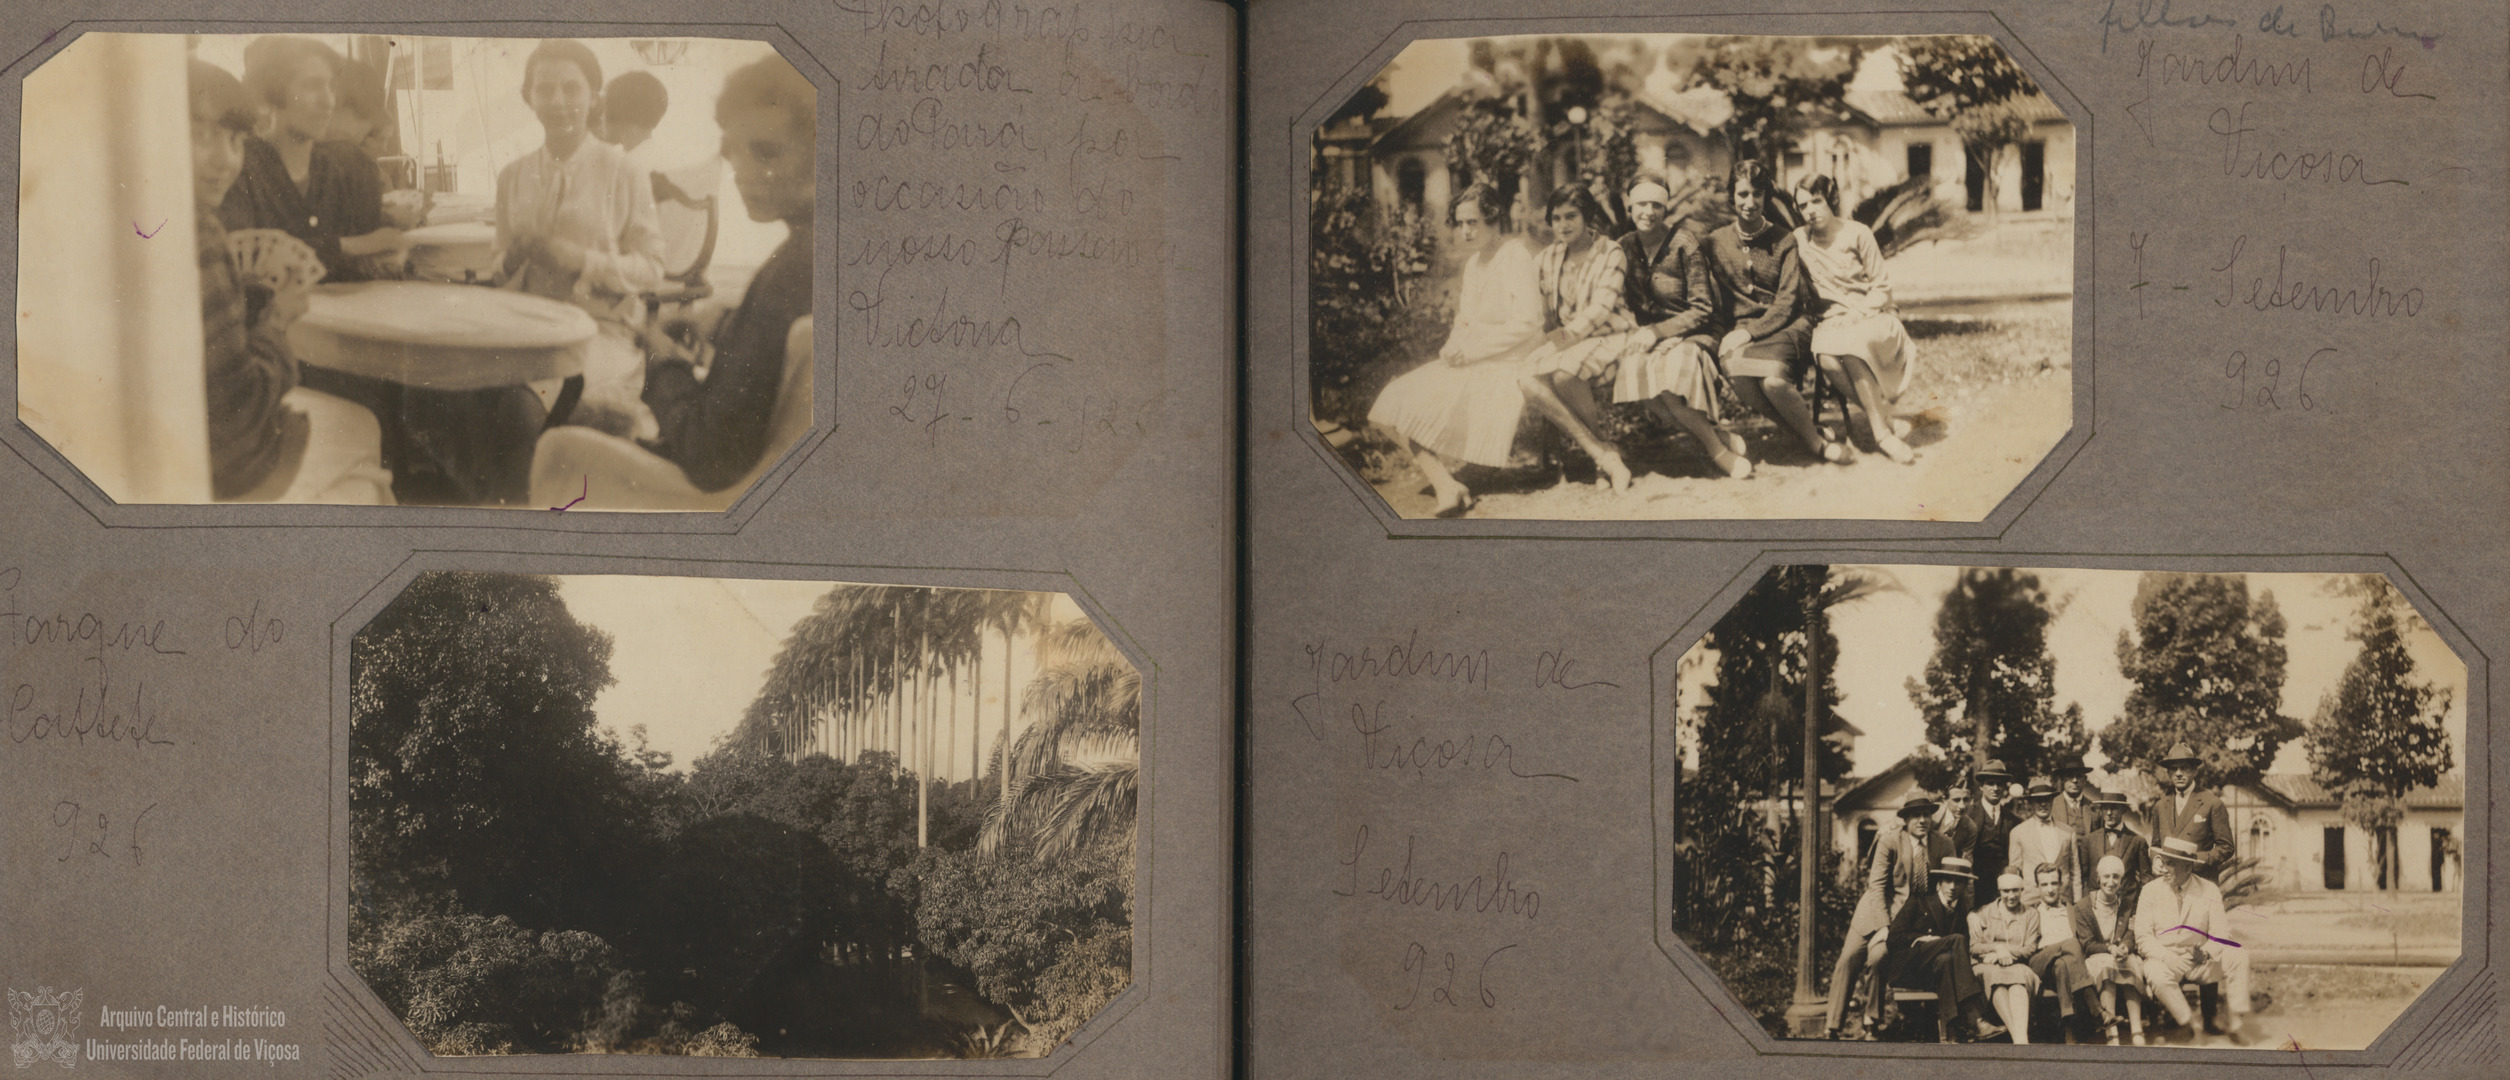 Photographia
tirada a bord
do Pará, por
occasião do
nosso Passeio a
Victoria
27-6-926
Parque do
Cattete
926
Arquivo Central e Histórico
Universidade Federal de Viçosa
filhas de
Jardim de
Viçosa
7 - Setembro
926
Jardim de
Viçosa
Setembro
926